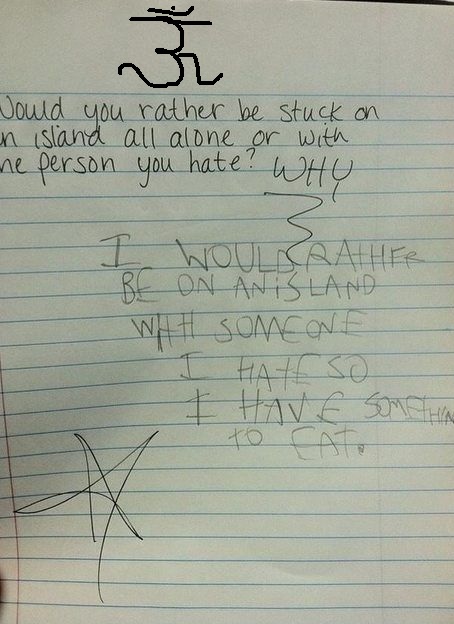 ऊँ
Would you rather be stuck on
n island all alone or with
he person you hate? WHY
I WOULD RATHER
BE ON AN ISLAND
WITH SOMEONE
I HATE SO
I HAVE SOMETHIN
TO EAT.